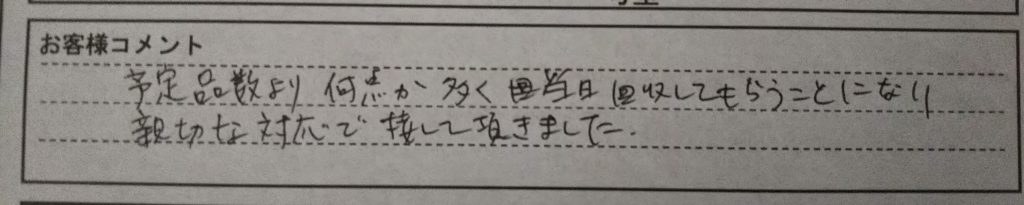 お客様コメント
予定品数より 何点か多く 当日回収してもらうことになり
親切な対応で接して頂きました.